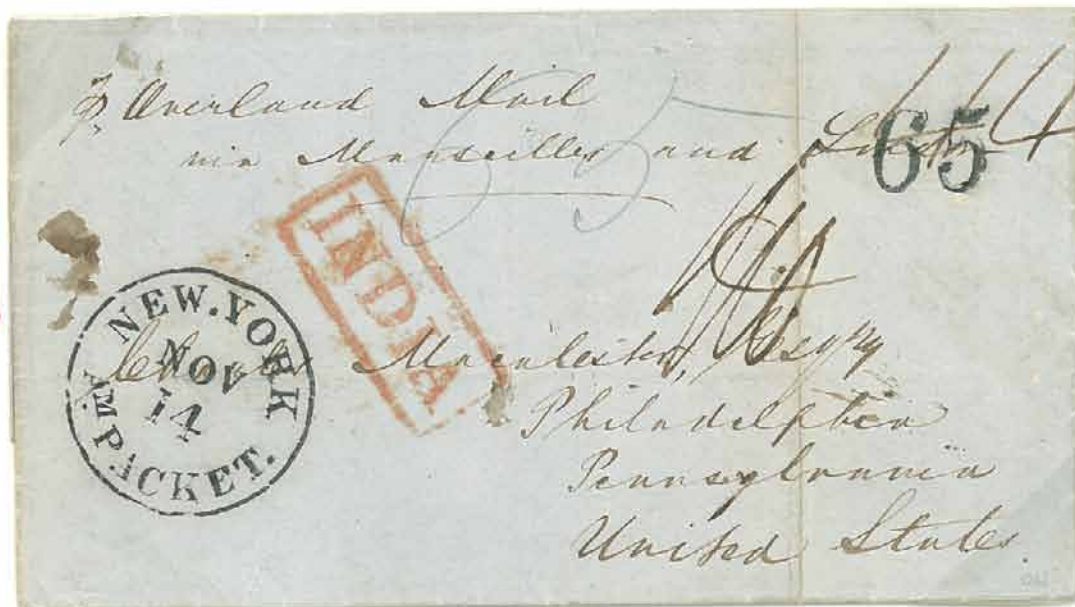 pr Overland Mail
via Marseilles and
65
65
INDIA
NEW.YORK
NOV
14
AM PACKET.
Charles Macalester, Esqre
Philadelphia
Pennsylvania
United States